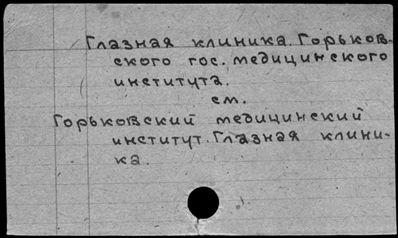 Глазная клиника. Горьков-
ского гос. медицинского
института.
см.
Горьковский медицинский
институт. Глазная клини-
ка.